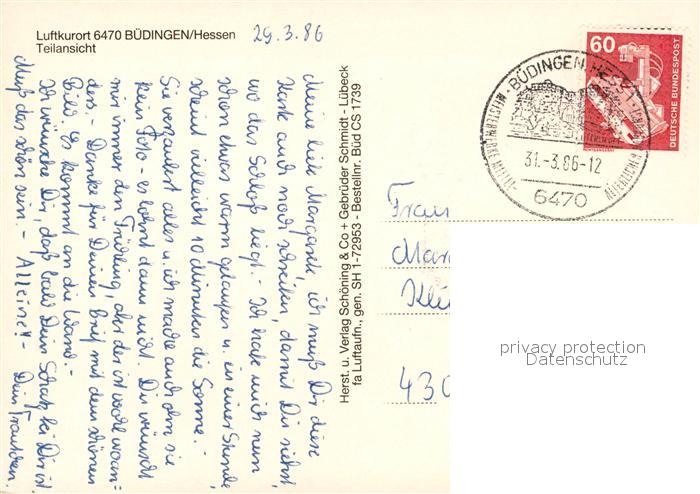 Luftkurort 6470 BÜDINGEN/Hessen
Teilansicht
29.3.86
Meine liebe Margarete, ich muß Dir diese
Karte auch noch schreiben, damit Du siehst,
wo das Schloß liegt. - Ich habe mich nun
schon etwas warm gelaufen u. in einer Stunde
scheint vielleicht 10 Minuten die Sonne. -
Sie verzaubert alles u. ich mache auch ohne sie
kein Foto - es lohnt dann nicht. Du wünscht
mir immer den Frühling, aber der ist wohl woan-
ders. - Danke für Deinen Brief mit dem schönen
Bild. Es kommt an die Wand. -
Ich wünsche Dir, daß bald Dein Schatz bei Dir ist
Muß das schön sein. - Alleine! - Dein
Herst. u. Verlag Schöning & Co + Gebrüder Schmidt - Lübeck
fa Luftaufn., gen. SH 1-72953 - Bestellnr. Büd CS 1739
BÜDINGEN, HESS 1
31.-3.86-12
6470
60
DEUTSCHE BUNDESPOST
Frau
Mar
430
privacy protection
Datenschutz